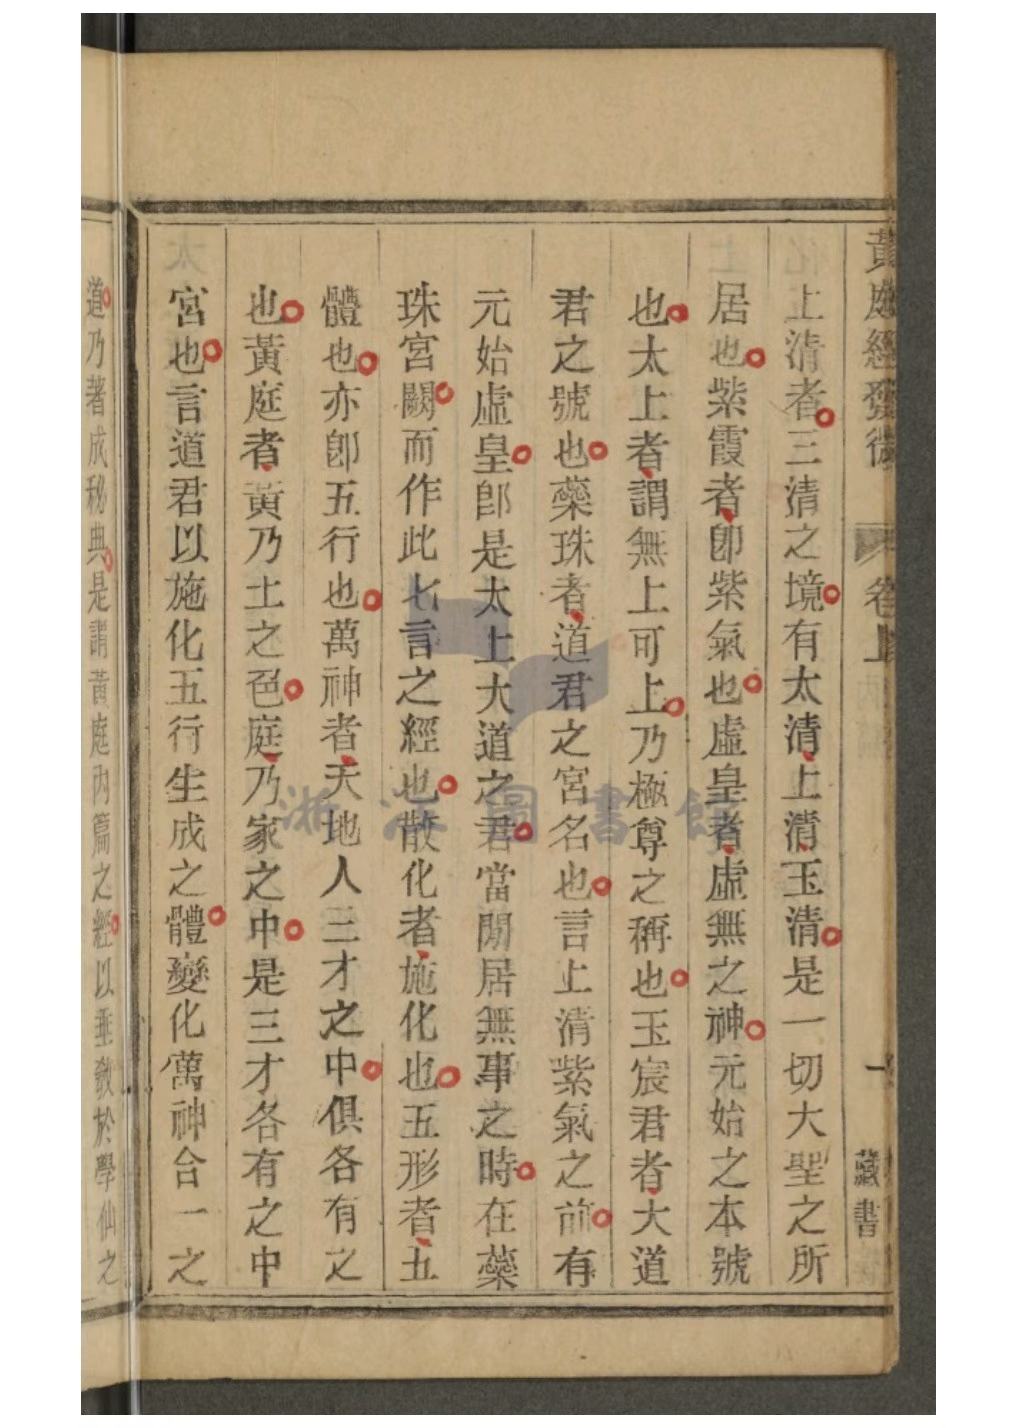 黃庭經發微
卷上
一
藏書
上清者三清之境有太清上清玉清是一切大聖之所
居也紫霞者卽紫氣也虛皇者虛無之神元始之本號
也太上者謂無上可上乃極尊之稱也玉宸君者大道
君之號也蘂珠者道君之宮名也言上清紫氣之前有
元始虛皇卽是太上大道之君當閒居無事之時在蘂
珠宮闕而作此七言之經也散化者施化也五形者五
體也亦卽五行也萬神者天地人三才之中俱各有之
也黃庭者黃乃土之色庭乃家之中是三才各有之中
宮也言道君以施化五行生成之體變化萬神合一之
道乃著成秘典是謂黃庭內篇之經以垂敎於學仙之
浙江圖書館